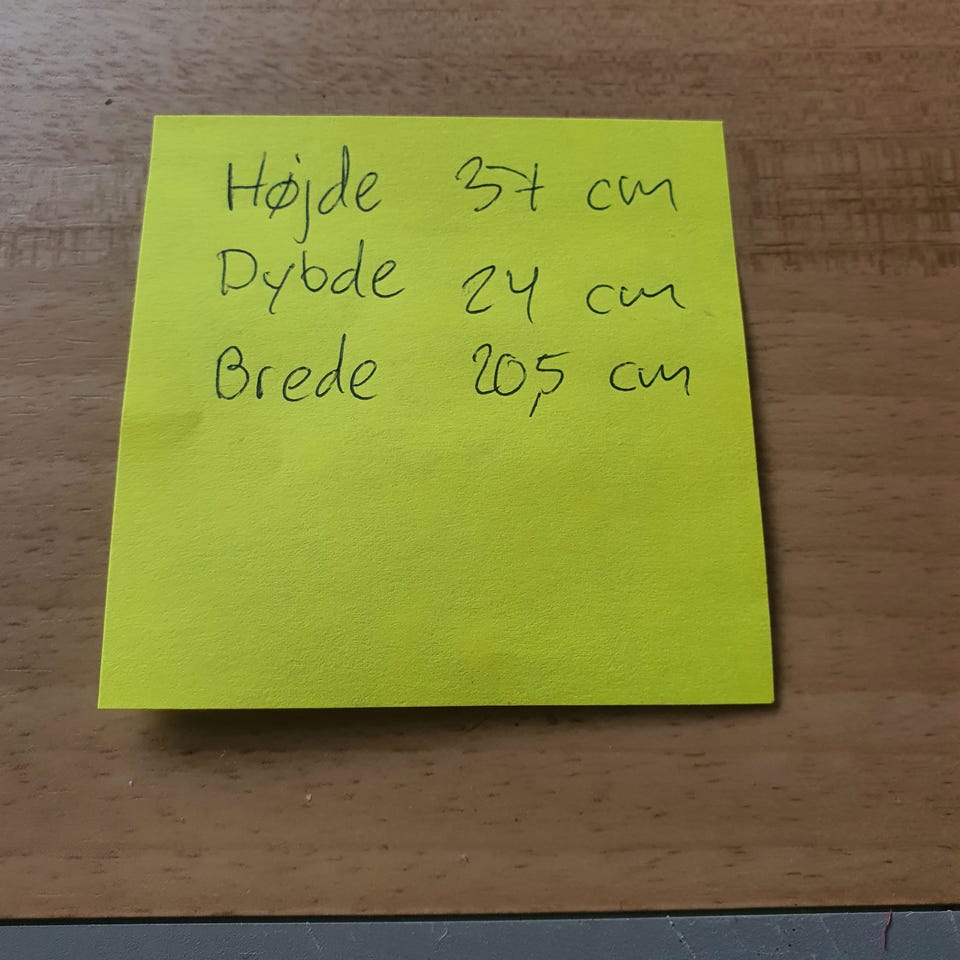 Højde 37 cm
Dybde 24 cm
Brede 20,5 cm